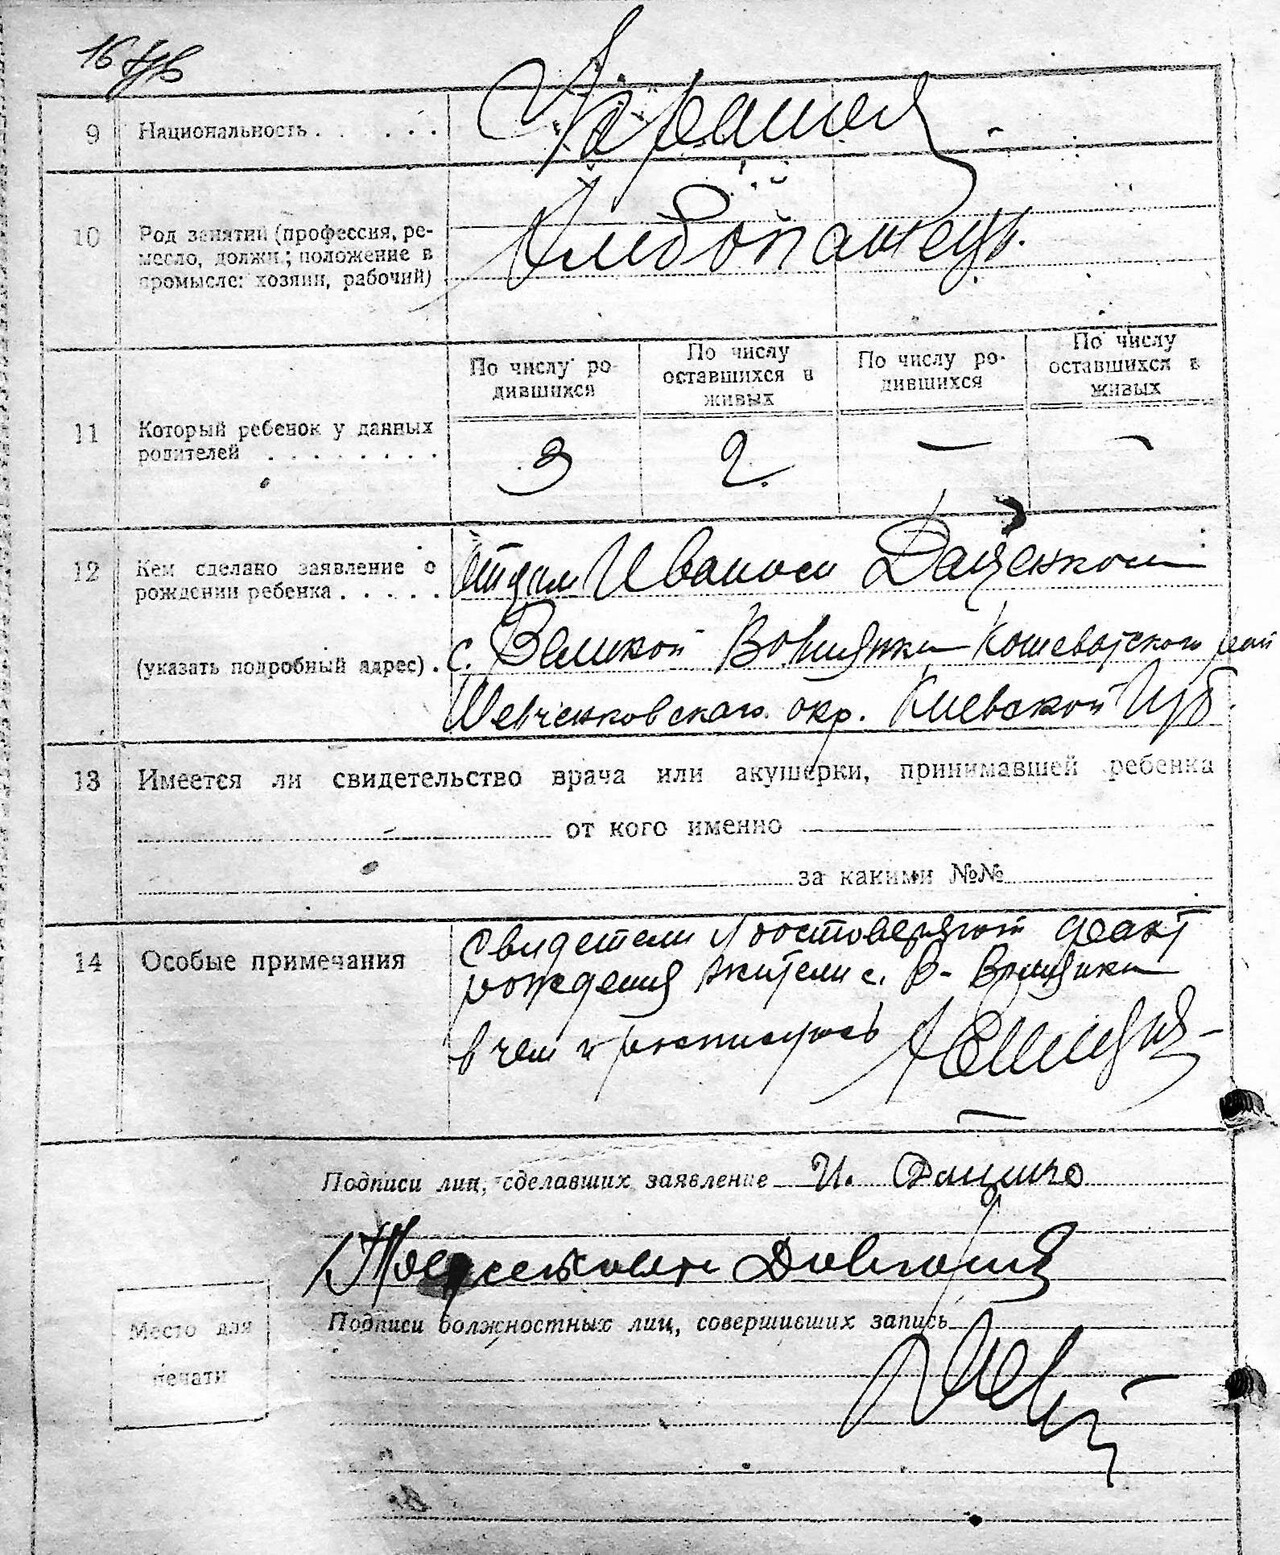 16
9 Национальность . . . . . .
10 Род занятий (профессия, ре-
месло, должн.; положение в
промысле: хозяин, рабочий)
Хлибопашець.
11 Который ребенок у данных
родителей . . . . . . . .
По числу ро-
дившихся
По числу
оставшихся в
живых
По числу ро-
дившихся
По числу
оставшихся в
живых
3 2 — —
12 Кем сделано заявление о
рождении ребенка . . . . .
Отцом Иваном Даценком
(указать подробный адрес) . с. Великой Вовнянки Кошеватского рай
Шевченковского окр. Киевской Губ.
13 Имеется ли свидетельство врача или акушерки, принимавшей ребенка
от кого именно
за какими №№
14 Особые примечания
Свидетели удостоверяют факт
рождения жители с. В- Вовнянки
в чем и росписуюсь
Подписи лиц, сделавших заявление И. Даценко
Подписи должностных лиц, совершивших запись
Место для
печати